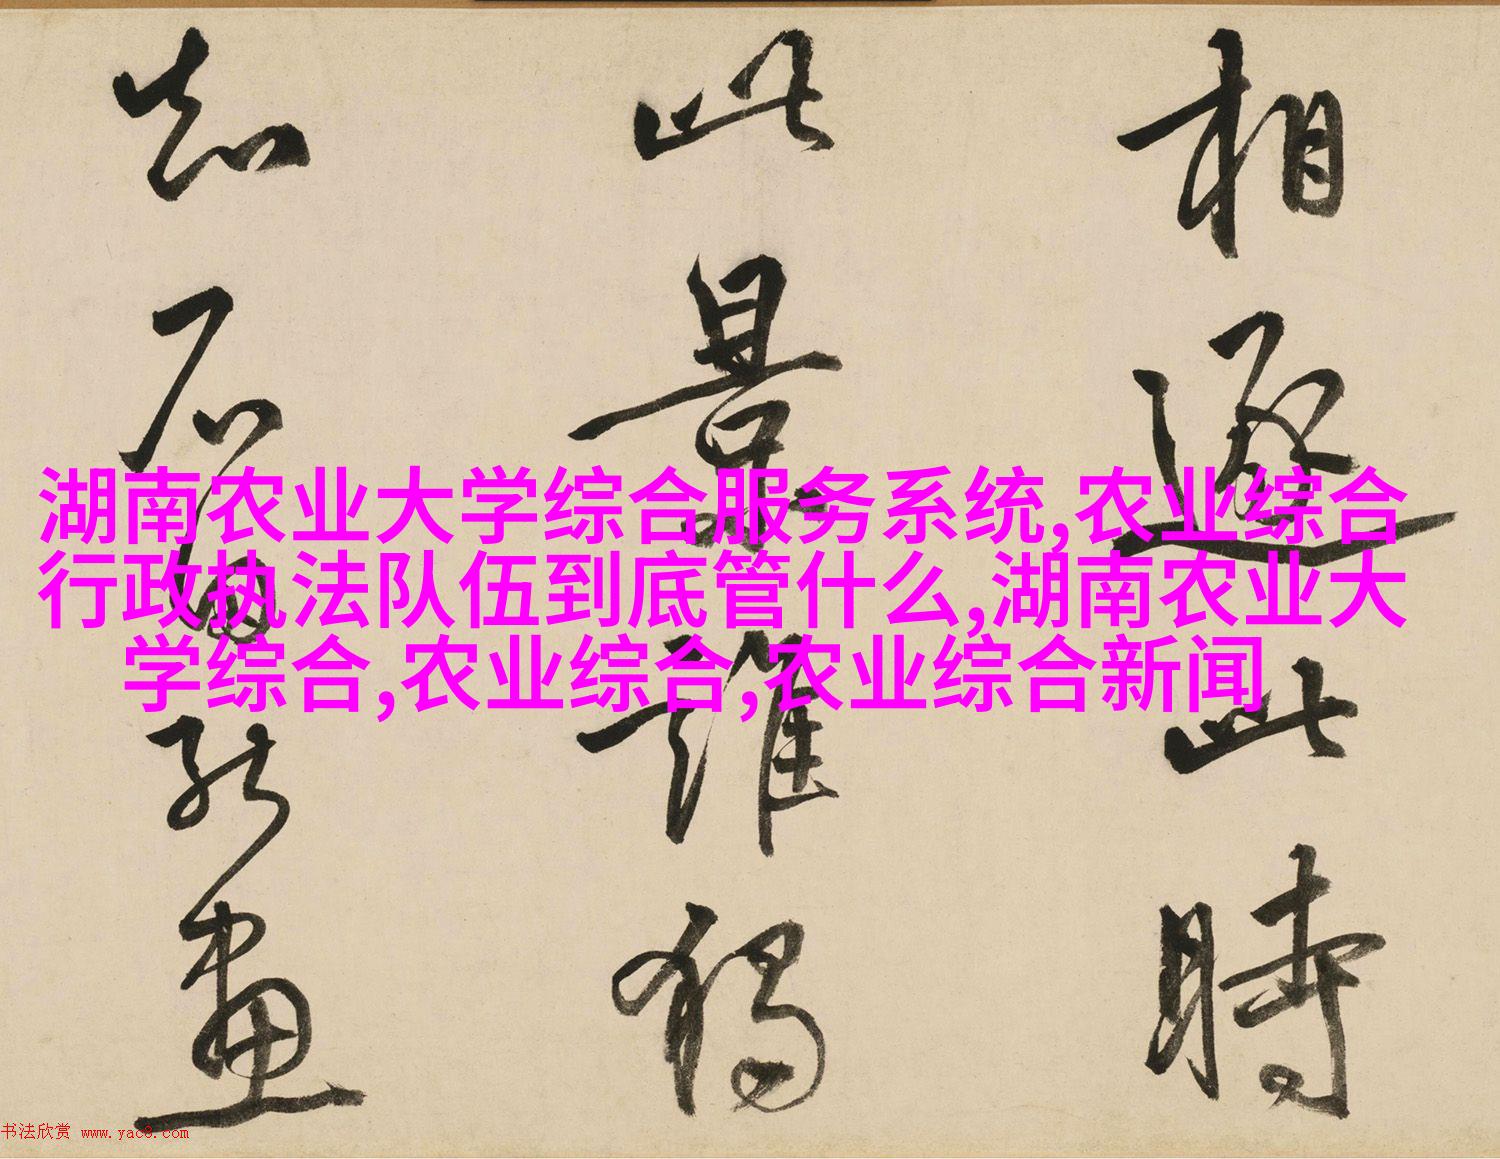 相逐此時
此景誰獨
知石田能畫
湖南农业大学综合服务系统,农业综合
行政执法队伍到底管什么,湖南农业大
学综合,农业综合,农业综合新闻
书法欣赏 www.yac8.com